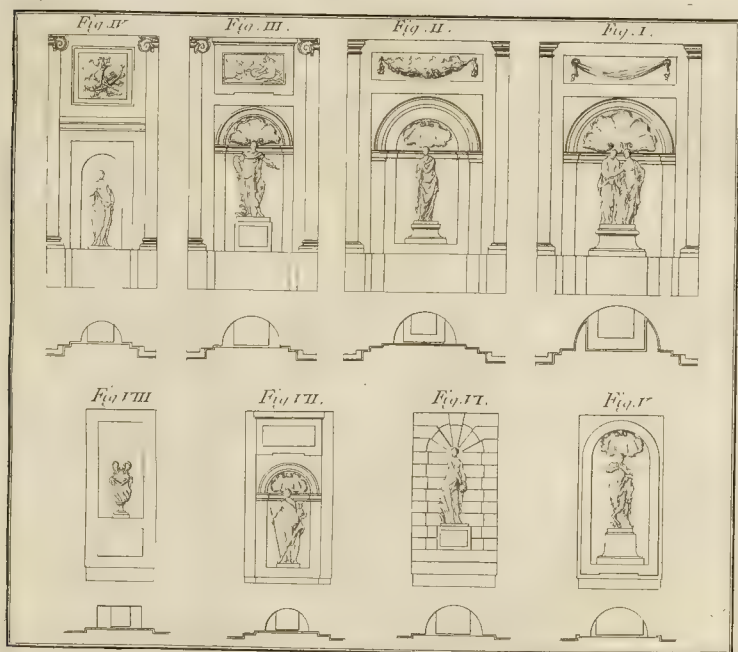 Fig. IV
Fig. III.
Fig. II.
Fig. I.
Fig. VIII
Fig. VII.
Fig. VI.
Fig. V